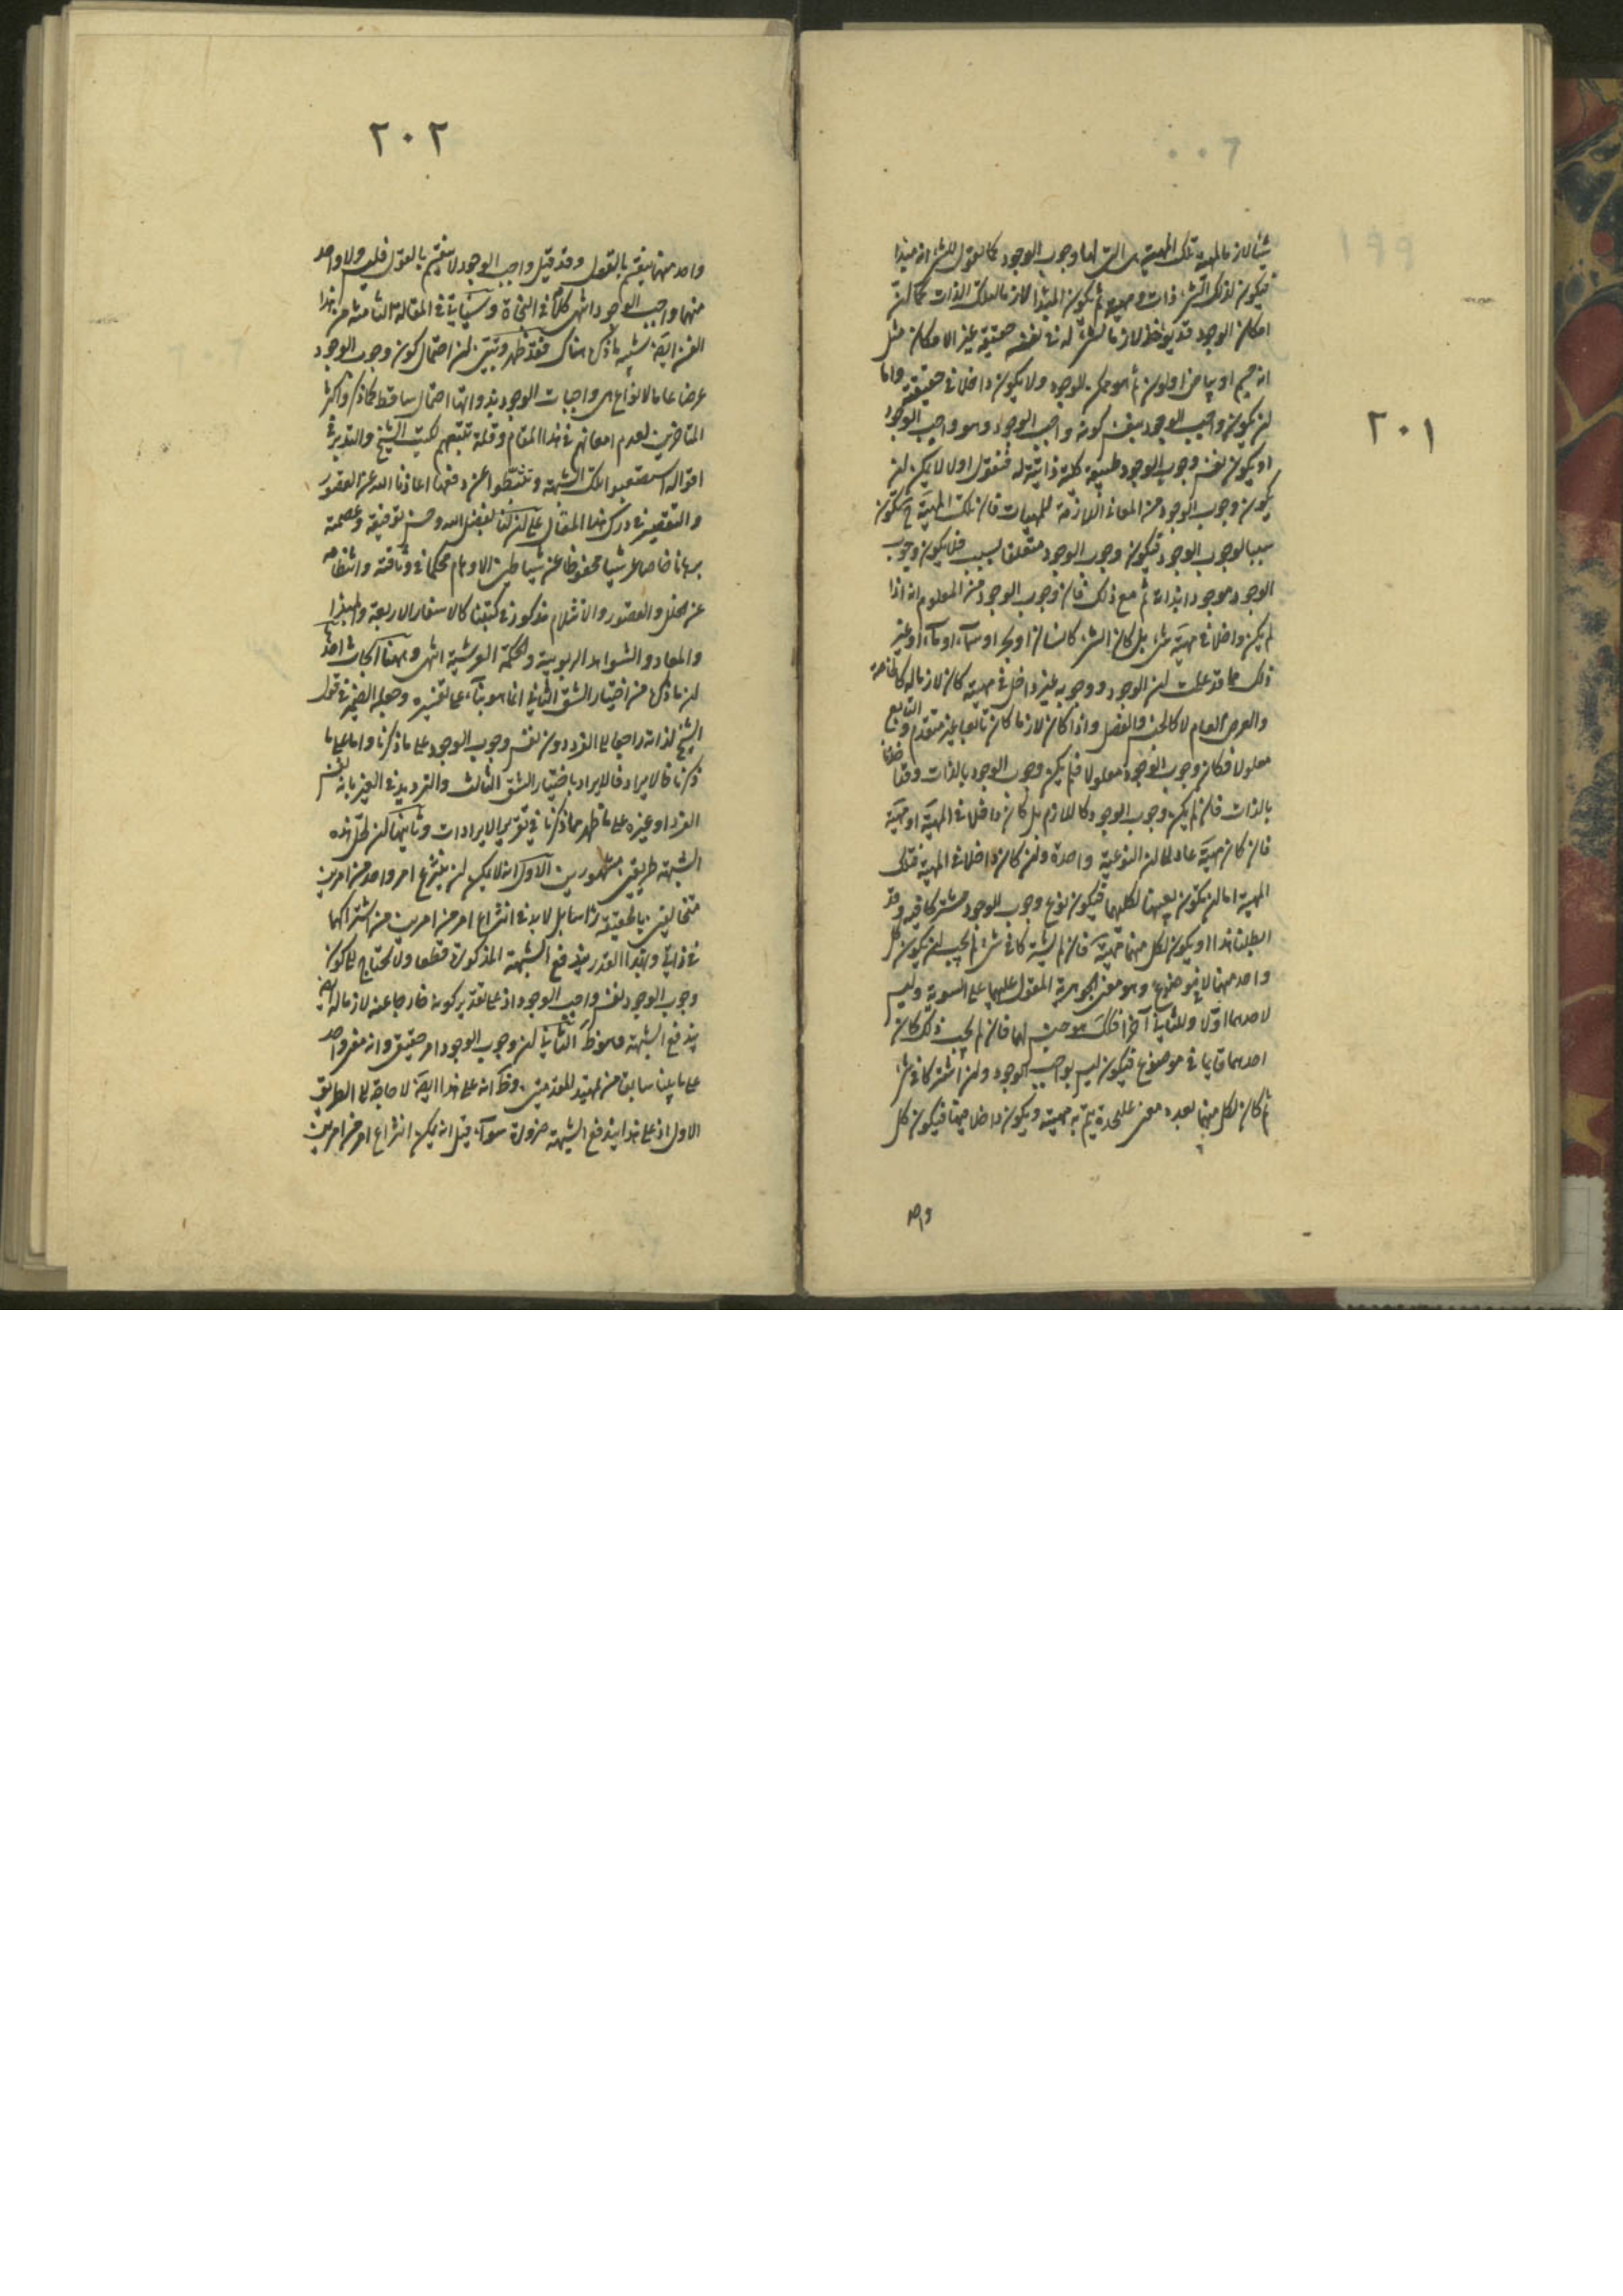 ٢٠١
شيئا لازما لمهية تلك المهية هى التى لها وجوب الوجود كما نقول للشئ انه مبدأ
فيكون لذلك الشئ ذات ومهية ثم يكون المبدأ لازما لتلك الذات كما ان
امكان الوجود قد يوخذ لازما لشئ له فى نفسه حقيقة غير الامكان مثل
انه جسم او بياض او لون ثم هو ممكن الوجود ولا يكون داخلا فى حقيقته واما
ان يكون واجب الوجود بنفس كونه واجب الوجود وهو واجب الوجود
او يكون نفس وجوب الوجود طبيعة كلية ذاتية له فنقول اولا لا يمكن ان
يكون وجوب الوجود من المعانى اللازمة للمهيات فان تلك المهية ح تكون
سببا لوجوب الوجود فيكون وجوب الوجود متعلقا بسبب فلا يكون وجوب
الوجود موجودا بذاته ثم مع ذلك فان وجوب الوجود من المعلوم انه اذا
لم يكن داخلا فى مهية شئ بل كان الشئ كانسان او شجر او سماء او ماء او غير
ذلك مما قد علمت ان الوجود ووجوبه غير داخل فى مهيته كان لازما له كالخاصة
والعرض العام لا كالجنس والفصل واذا كان لازما كان تابعا غير متقدم والتابع
معلولا فكان وجوب الوجود معلولا فلم يكن وجوب الوجود بالذات وقد اخذناه
بالذات فان لم يكن وجوب الوجود كاللازم بل كان داخلا فى المهية او مهية
فان كان مهية عاد الى ان النوعية واحدة وان كان داخلا فى المهية فتلك
المهية اما ان تكون بعينها لكليهما فيكون نوع وجوب الوجود مشتركا فيه وقد
ابطلنا هذا او يكون لكل منهما مهية فان لم يشتركا فى شئ لم يجب ان يكون كل
واحد منهما لا فى موضوع وهو معنى الجوهرية المقول عليهما على السوية وليس
لاحدهما اولا وللثانى آخرا فلذلك هو جنس لهما فان لم يجب ذلك كان
احدهما قايما فى موضوع فيكون ليس بواجب الوجود وان اشتركا فى شئ
ثم كان لكل منهما بعده معنى على حدة يتم به مهيته ويكون داخلا فيها فيكون كل
واحد
٢٠٢
واحد منهما ينقسم بالقول وقد قيل واجب الوجود لا ينقسم بالقول فليس ولا واحد
منهما واجب الوجود انتهى كلامه فى النجاة وسيأتى فى المقالة الثامنة من هذا
الفن ايضا شبيه ما ذكره هناك فقد ظهر وتبين ان احتمال كون وجوب الوجود
عرضا عاما لانواع هى واجبات الوجود بذواتها احتمال ساقط كما ذكره اكثر
المتاخرين لعدم امعانهم فى هذا المقام وقلة تتبعهم لكتب الشيخ والتدبر فى
اقواله استصعبوا تلك الشبهة وتثبطوا عن دفعها اعاذنا الله عن القصور
والتقصير فى درك هذا المقال على ان لنا بفضل الله وحسن توفيقه وعصمته
برهانا خاصا عرشيا محفوظا عن شياطين الاوهام محكما فى وثاقته وانتظامه
عن الخلل والقصور والانثلام مذكور فى كتبنا كالاسفار الاربعة والمبدأ
والمعاد والشواهد الربوبية والحكمة العرشية انتهى وههنا ابحاث احدها
ان ما ذكره من اختيار الشق الثانى انما هو بناء على تفسيره وجعله الضمير فى قول
الشيخ لذاته راجعا الى الفرد دون نفس وجوب الوجود على ما ذكرنا واما على ما
ذكرنا فالايراد فالايراد باختيار الشق الثالث والترديد فى الغير بانه نفس
الفرد او غيره على ما ظهر مما ذكرنا فى تقرير الايرادات وثانيها ان لحل هذه
الشبهة طريقين مشهورين الاول انه لا يمكن ان ينتزع امر واحد من امرين
متخالفين بالحقيقة راسا بل لا بد فى انتزاع امر من امرين من اشتراكهما
فى ذاتى وبهذا القدر يندفع الشبهة المذكورة قطعا ولا يحتاج الى كون
وجوب الوجود نفس واجب الوجود اذ على تقدير كونه خارجا عنه لازما له ايضا
يندفع الشبهة وهو ظ الثانى ان وجوب الوجود امر حقيقى وانه معنى واحد
على ما بينا سابقا من تمهيد المقدمتين وظ انه على هذا ايضا لا حاجة الى الطريق
الاول اذ على هذا يندفع الشبهة ضرورة سواء قيل انه يمكن انتزاع امر من امرين